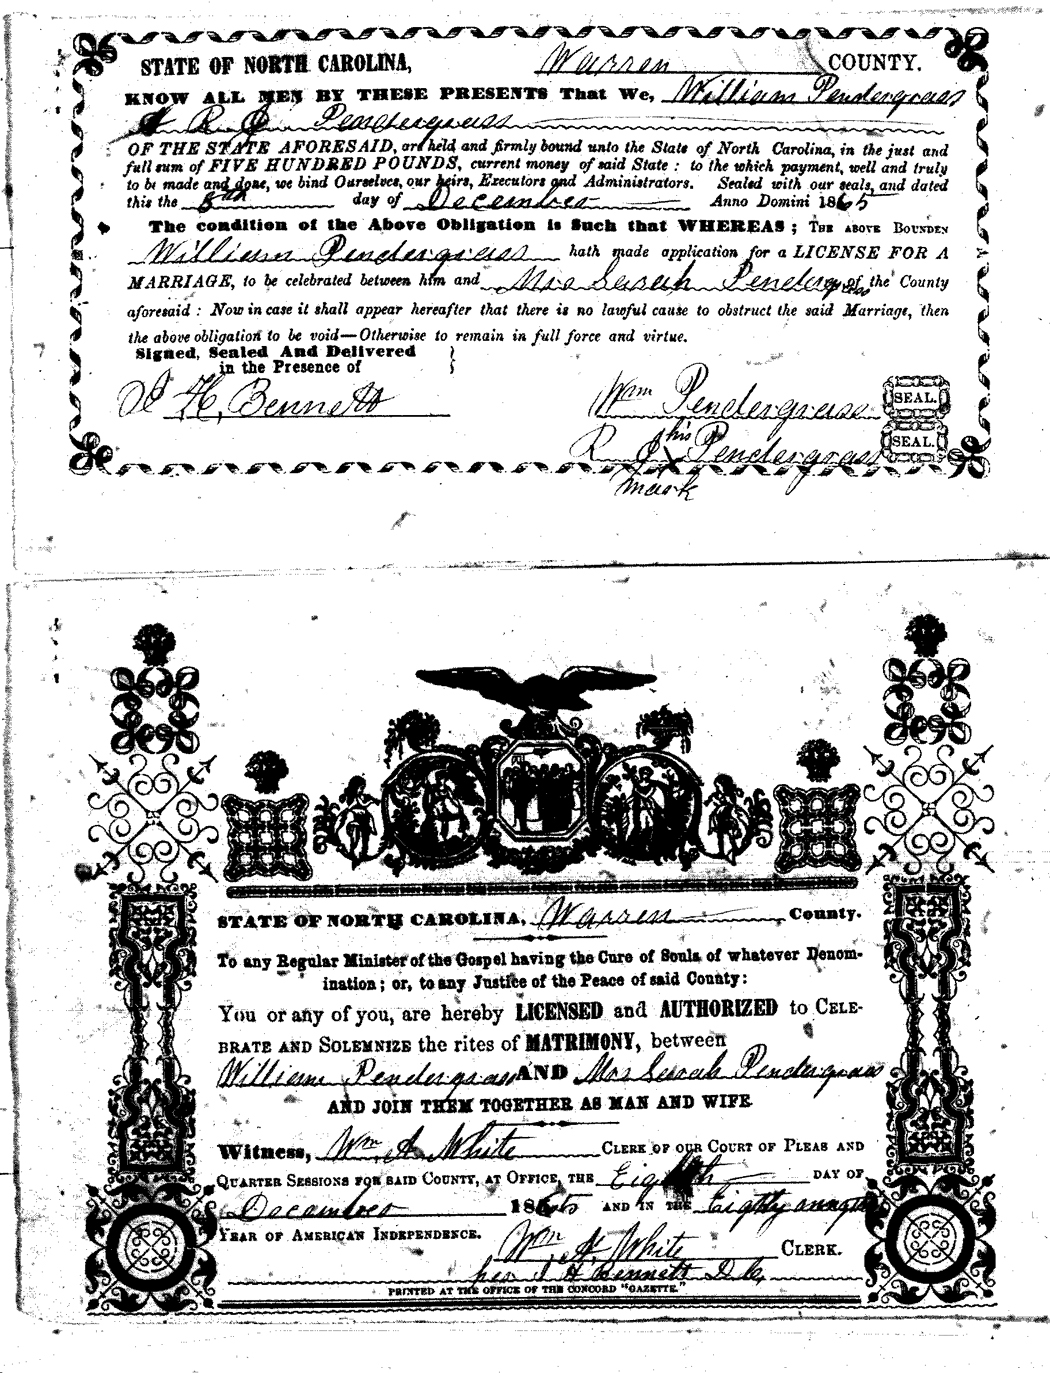 STATE OF NORTH CAROLINA, Warren COUNTY.
KNOW ALL MEN BY THESE PRESENTS That We, William Pendergrass
& R J Pendergrass
OF THE STATE AFORESAID, are held and firmly bound unto the State of North Carolina, in the just and
full sum of FIVE HUNDRED POUNDS, current money of said State: to the which payment, well and truly
to be made and done, we bind Ourselves, our heirs, Executors and Administrators. Sealed with our seals, and dated
this the 8th day of December Anno Domini 1865
The condition of the Above Obligation is Such that WHEREAS; THE ABOVE BOUNDEN
William Pendergrass hath made application for a LICENSE FOR A
MARRIAGE, to be celebrated between him and Mrs Sarah Pendergrass of the County
aforesaid: Now in case it shall appear hereafter that there is no lawful cause to obstruct the said Marriage, then
the above obligation to be void—Otherwise to remain in full force and virtue.
Signed, Sealed And Delivered
in the Presence of
H. Bennett
Wm Pendergrass SEAL.
R J his X Pendergrass SEAL.
mark
STATE OF NORTH CAROLINA, Warren County.
To any Regular Minister of the Gospel having the Cure of Souls, of whatever Denom-
ination; or, to any Justice of the Peace of said County:
You or any of you, are hereby LICENSED and AUTHORIZED to CELE-
BRATE AND SOLEMNIZE the rites of MATRIMONY, between
William Pendergrass AND Mrs Sarah Pendergrass
AND JOIN THEM TOGETHER AS MAN AND WIFE
Witness, Wm A. White CLERK OF OUR COURT OF PLEAS AND
QUARTER SESSIONS FOR SAID COUNTY, AT OFFICE, THE Eighth DAY OF
December 1865 AND IN THE
YEAR OF AMERICAN INDEPENDENCE.
Wm A. White CLERK.
per H Bennett D. C.
PRINTED AT THE OFFICE OF THE CONCORD "GAZETTE."